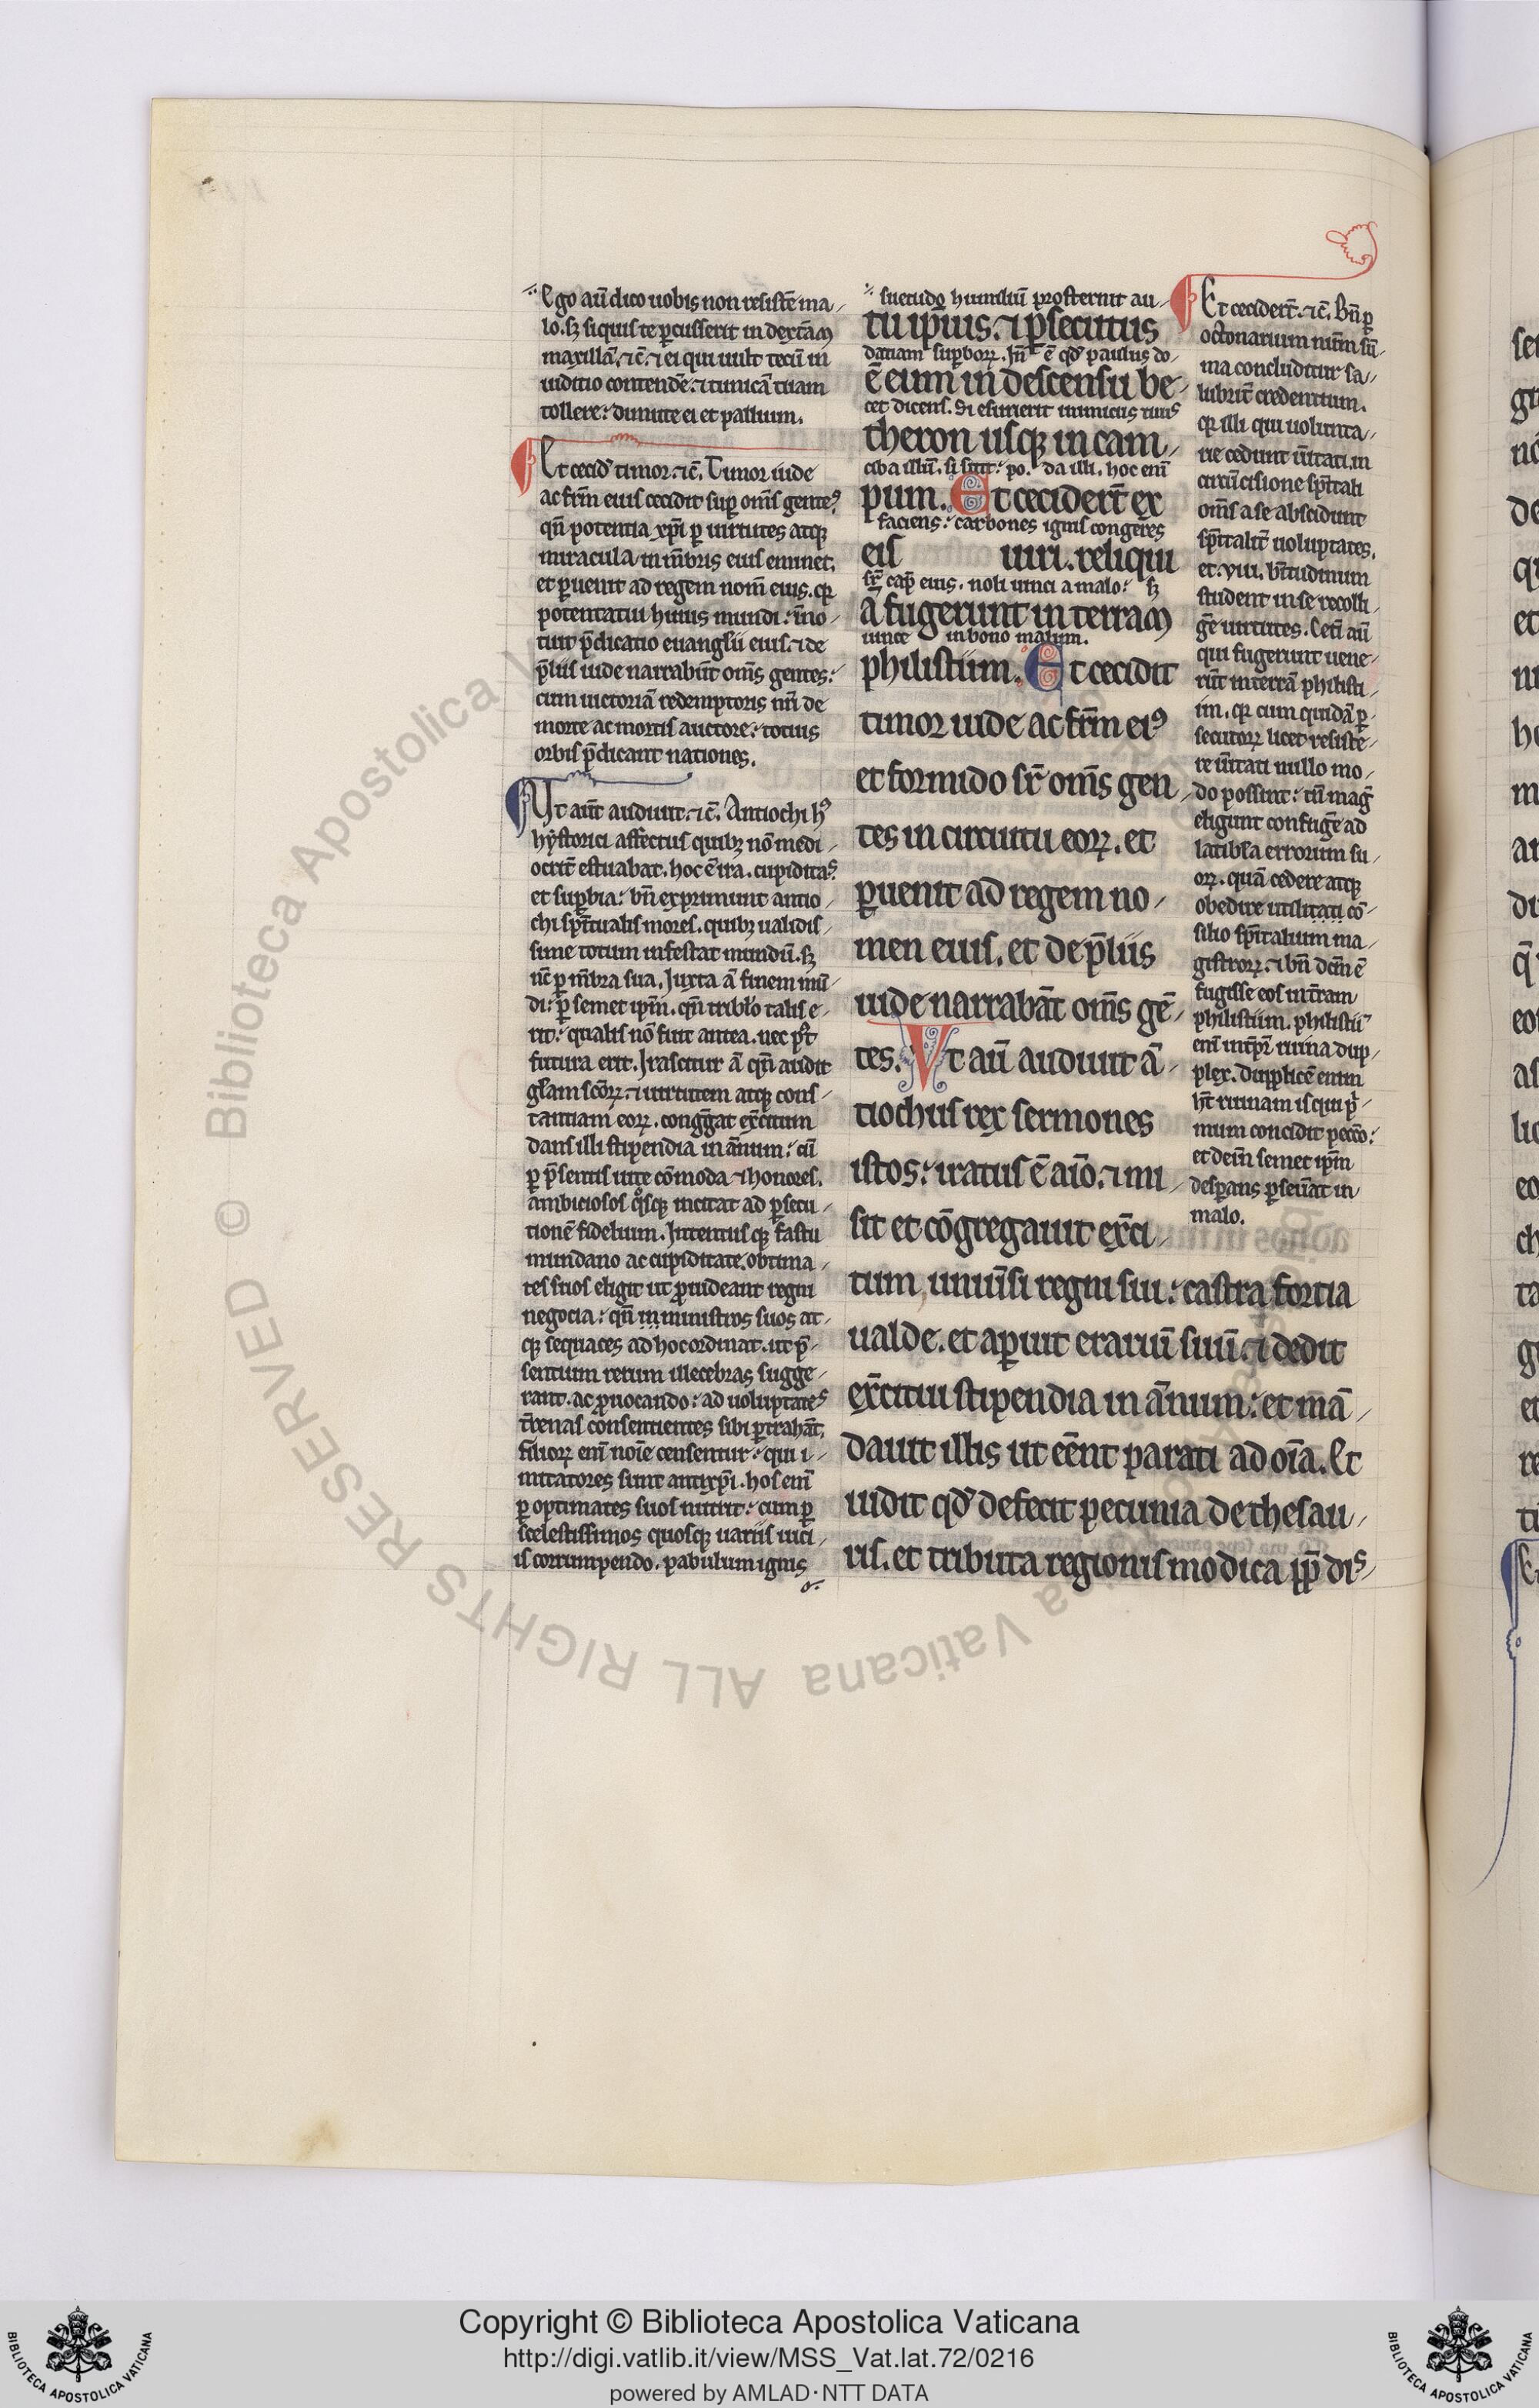 Ego aū dico uobis non resistē̄ ma
lo. sꝫ si quis te ꝑcusserit in dextāʒ
maxillā, ⁊c̄. ⁊ ei qui uult tecū in
iuditio contendē. ⁊ tunicā tuam
tollere: dimitte ei et pallium.
Et cecidˀ timor. ⁊c̄. Timor iude
ac frm̄ eius cecidit suꝑ om̄s genteˢ
qn̄ potentia xp̄i ꝑ uirtutes atqꝫ
miracula in m̄bris eius eminet.
et ꝑuenit ad regem nom̄ eius. qꝫ
potentatui huius mundi: īno
tuit p̄dicatio euanglii eius. ⁊ de
p̄liis iude narrabūt om̄s gentes:
cum uictoriā redemptoris nr̄i de
morte ac mortis auctore: totius
orbis p̄dicant nationes.
Ut aūt audiuit. ⁊c̄. Antiochi hꝰ
hystorici affectus quibꝫ nō medi
ocrit̄ estuabat. hoc ē ira. cupiditaˢ
et suꝑbia: bn̄ exprimunt antio
chi sp̄itualis mores. quibꝫ ualidis
sime totum infestat mundū. sꝫ
nc̄ ꝑ m̄bra sua. Iuxta ā finem mū
di: ꝑ semet ipm̄. qn̄ tribło talis e
rit: qualis nō fuit antea. nec pꝰt
futura erit. Irascitur ā qn̄ audit
glam scōꝝ. ⁊ uirtutem atqꝫ cons
tantiam eoꝝ. conḡgat ex̄citum
dans illi stipendia in ānum: cū
ꝑ p̄sentis uite cōmoda ⁊ honores.
ambiciosos qͦsqꝫ incitat ad ꝑsecu
tionē fidelium. Intentusqꝫ fastu
mundano ac cupiditate. obtima
tes suos eligit ut ꝓuideant regni
negocia: qn̄ in ministros suos at
qꝫ sequaces ad hoc ordinat. ut p̄
sentium rerum illecebras sugge
rant. ac ꝓuocando: ad uoluptateˢ
t̄renas consentientes sibi ꝑtrahāt.
filioꝝ eni᷎ noīe censentur: qui i
mitatores sunt antixp̄i. hos enī
ꝑ optimates suos nutrit: cum ꝑ
scelestissimos quosqꝫ uariis uici
is corrumpendo. pabulum ignis
suetudo humiliū prosternit au
tu ip̄ius. ⁊ ꝑsecutus
datiam suꝑboꝝ. In̄ ē qdˀ paulus do
ē eum in descensu be
cet dicens. Si esurierit inimicus tuus
theron usqꝫ in cam
ciba illū. si sitit: po. da illi. hoc enī
pum. Et ceciderūt ex
faciens: carbones ignis congeres
eis uiri. reliqui
sr̄ cap̄ eius. noli uinci a malo: sꝫ
ā fugerunt in terraʒ
uince in bono malum.
philistiim. Et cecidit
timor iude ac frm̄ eiꝰ
et formido sr̄ om̄s gen
tes in circuitu eoꝝ. et
ꝑuenit ad regem no
men eius. et de p̄liis
iude narrabāt om̄s gē
tes. Vt aū audiuit ā
tiochus rex sermones
istos: iratus ē aīo. ⁊ mi
sit et cōgregauit ex̄ci
tum uniūsi regni sui: castra fortia
ualde. et aꝑuit erariū suū. ⁊ dedit
ex̄citui stipendia in ānum: et mā
dauit illis ut eēnt parati ad oīa. Et
uidit qdˀ defecit pecunia de thesau
ris. et tributa regionis modica ꝓp̄ diˢ
Et ceciderūt. ⁊c̄. Bn̄ ꝑ
octonarium num̄ sū
ma concluditur sa
lubrit̄ credentium.
qꝫ illi qui uolunta
rie cedunt ūitati. in
circūcisione sp̄itali
om̄s a se abscidunt
sp̄italit̄ uoluptates.
et. viii. bt̄itudinum
student in se recolli
gē uirtutes. Cetī aū
qui fugerunt uene
rūt in terrā philisti
im. qꝫ cum quidā ꝑ
secutoꝝ licet resiste
re ūitati nullo mo
do possint: tn̄ magˢ
eligunt confugē ad
latibła errorum su
oꝝ. quā cedere atqꝫ
obedire utilitati cō
silio sp̄italium ma
gistroꝝ. ⁊ ibn̄ dem̄ ē
fugisse eos in tram
philistiim. philistiī
enī intp̄r ruina dup
plex. Dupplicē enim
hn̄t ruinam is qui p̄
mum concidit pecc̄o:
et dein̄ semet ipm̄
desꝑans ꝑseūat in
malo.
© Biblioteca Apostolica Vaticana ALL RIGHTS RESERVED
Copyright © Biblioteca Apostolica Vaticana
http://digi.vatlib.it/view/MSS_Vat.lat.72/0216
powered by AMLAD·NTT DATA
BIBLIOTECA APOSTOLICA VATICANA
BIBLIOTECA APOSTOLICA VATICANA